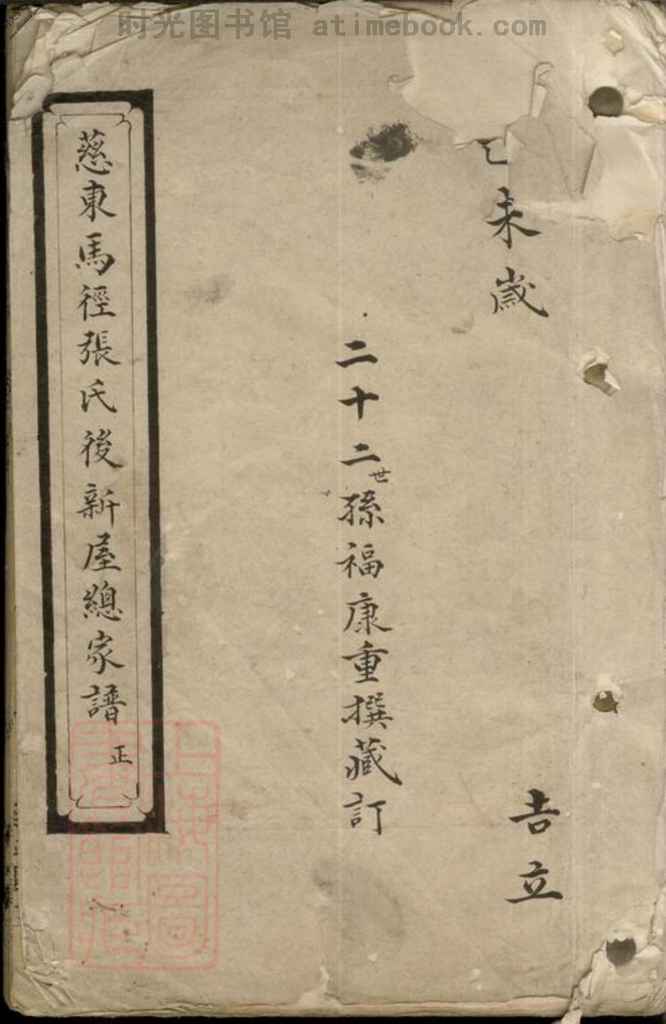 时光图书馆 atimebook.com
未歲
吉立
二十二世孫福康重撰藏訂
慈東馬徑張氏後新屋總家譜 正